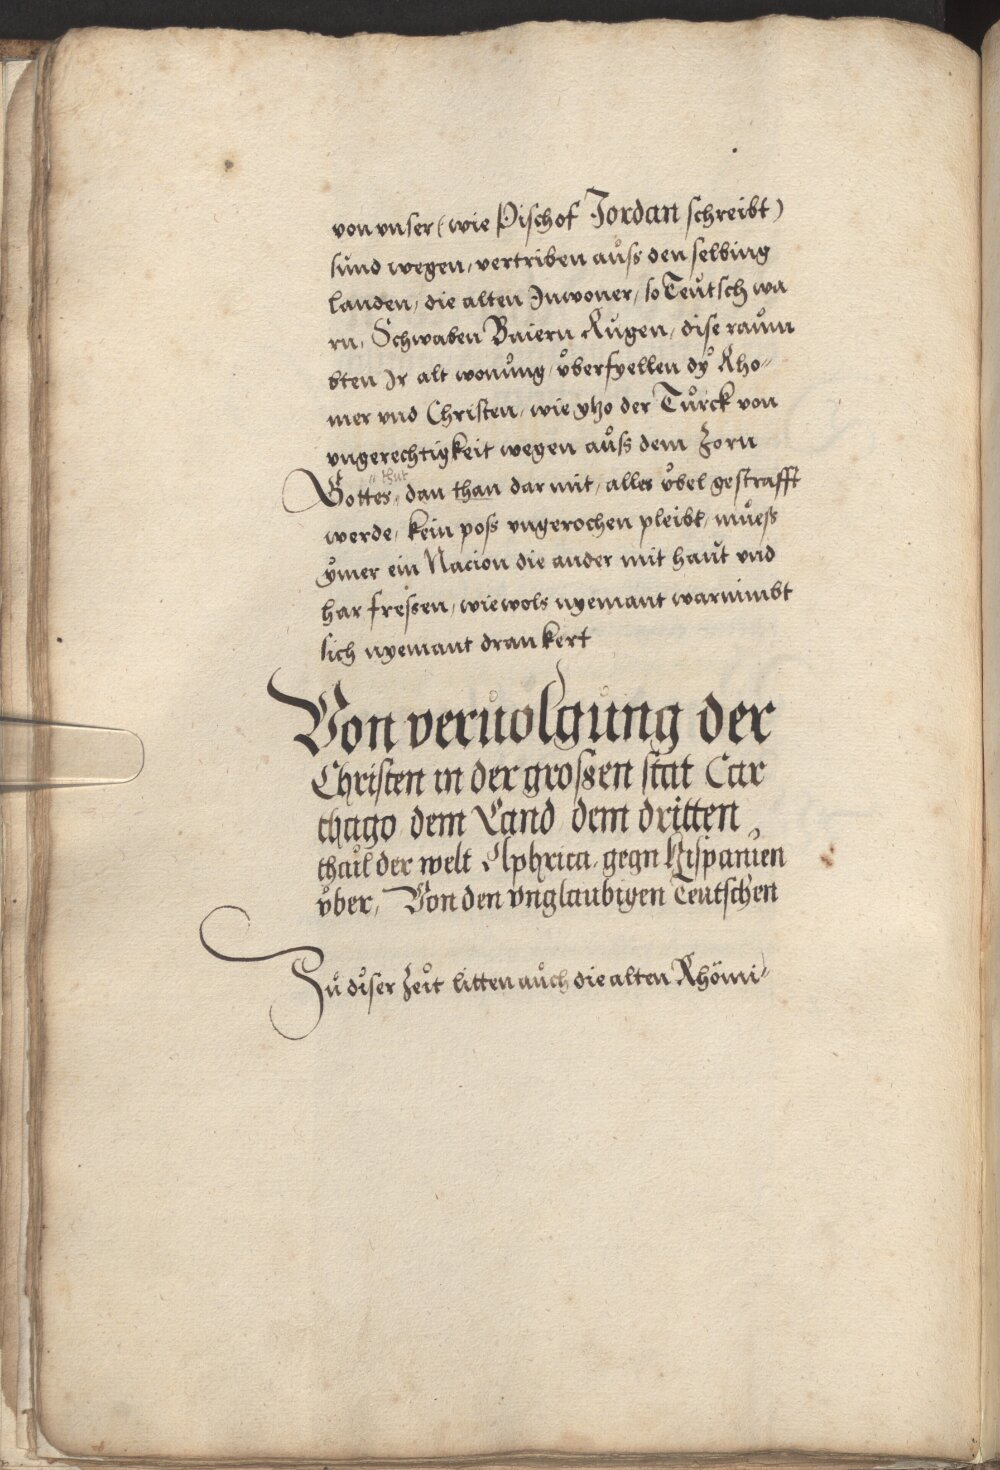 von vnser (wie Pischof Jordan schreibt)
sund wegen, vertriben auß den selbing
landen, die alten Inwoner, so Teütsch wa
rn, Schwaben Baiern Rügen, dise raum
bten Ir alt wonůng, vberfyellen dÿ Rho-
mer vnd Christen, wie ytzo der Türck von
vngerechtigkeit wegen auß dem Zorn
thut
Gottes, dan than dar mit, alles v̊bel gestrafft
werde, kein poss vngerochen pleibt, můess
ÿmer ein Nacion die ander mit haůt vnd
har fressen, wiewols nyemant warnimbt
sich nyemant dran kert
Von veruolgůng der
Christen in der grossen stat Car
thago dem Land dem dritten
thail der welt Aphrica, gegn Hispanien
v̊ber, Von den vnglaubigen Teutschen
Zů diser Zeit litten aůch die alten Rhömi-